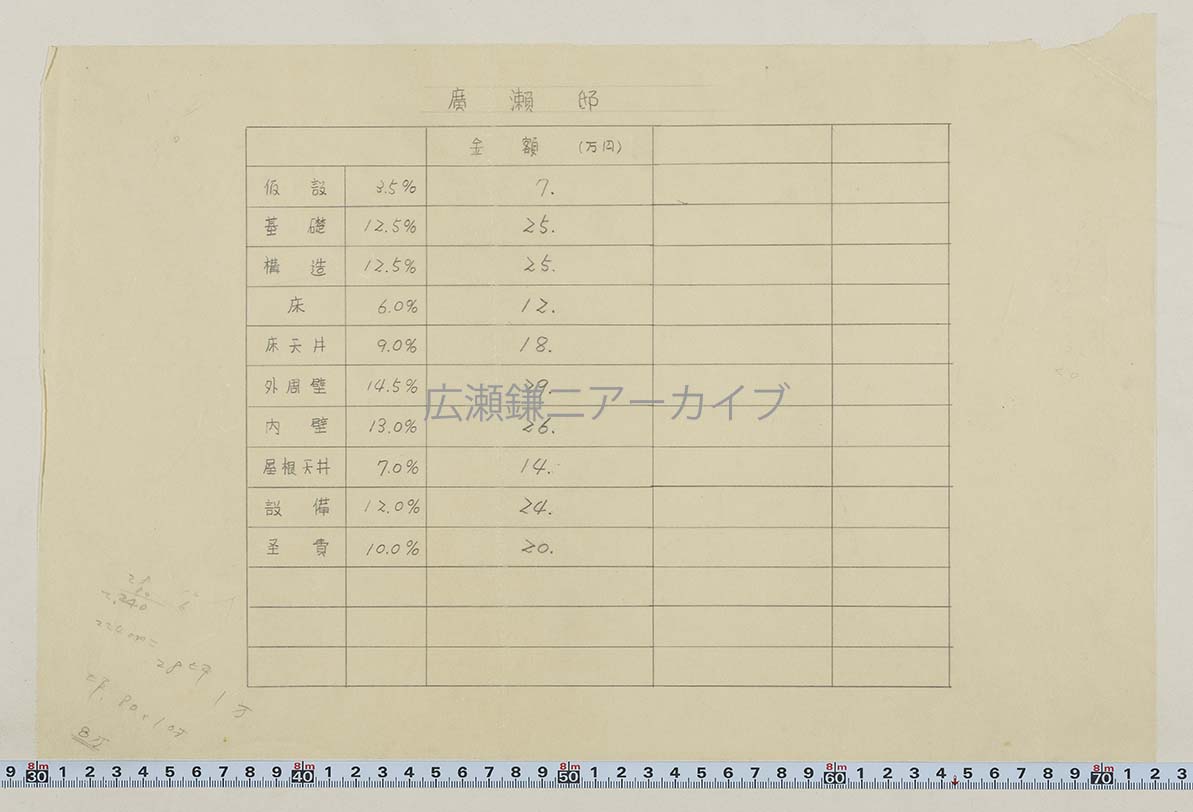 廣瀨邸
金額 (万円)
仮設 3.5% 7.
基礎 12.5% 25.
構造 12.5% 25.
床 6.0% 12.
床天井 9.0% 18.
外周壁 14.5% 29.
広瀬鎌二アーカイブ
内壁 13.0% 26.
屋根天井 7.0% 14.
設備 12.0% 24.
圣費 10.0% 20.
28
80
2,240
28坪
1万
8万
9 30 1 2 3 4 5 6 7 8 9 40 1 2 3 4 5 6 7 8 9 50 1 2 3 4 5 6 7 8 9 60 1 2 3 4 5 6 7 8 9 70 1 2 3
8m 8m 8m 8m 8m